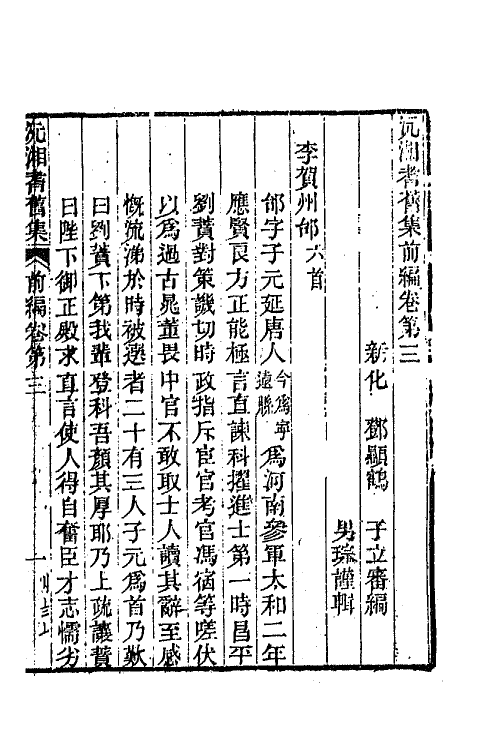 沅湘耆舊集前編卷第三
新化 鄧顯鶴 子立審編
男琮謹輯
李賀州郃六首
郃字子元延唐人今爲寧遠縣爲河南參軍太和二年
應賢良方正能極言直諫科擢進士第一時昌平
劉蕡對策譏切時政指斥宦官考官馮宿等嗟伏
以爲過古晁董畏中官不敢取士人讀其辭至感
慨流涕於時被選者二十有三人子元爲首乃歎
曰劉蕡下第我輩登科吾顏其厚耶乃上疏讓蕡
曰陛下御正殿求直言使人得自奮臣才志懦劣
沅湘耆舊集 前編卷第三 一